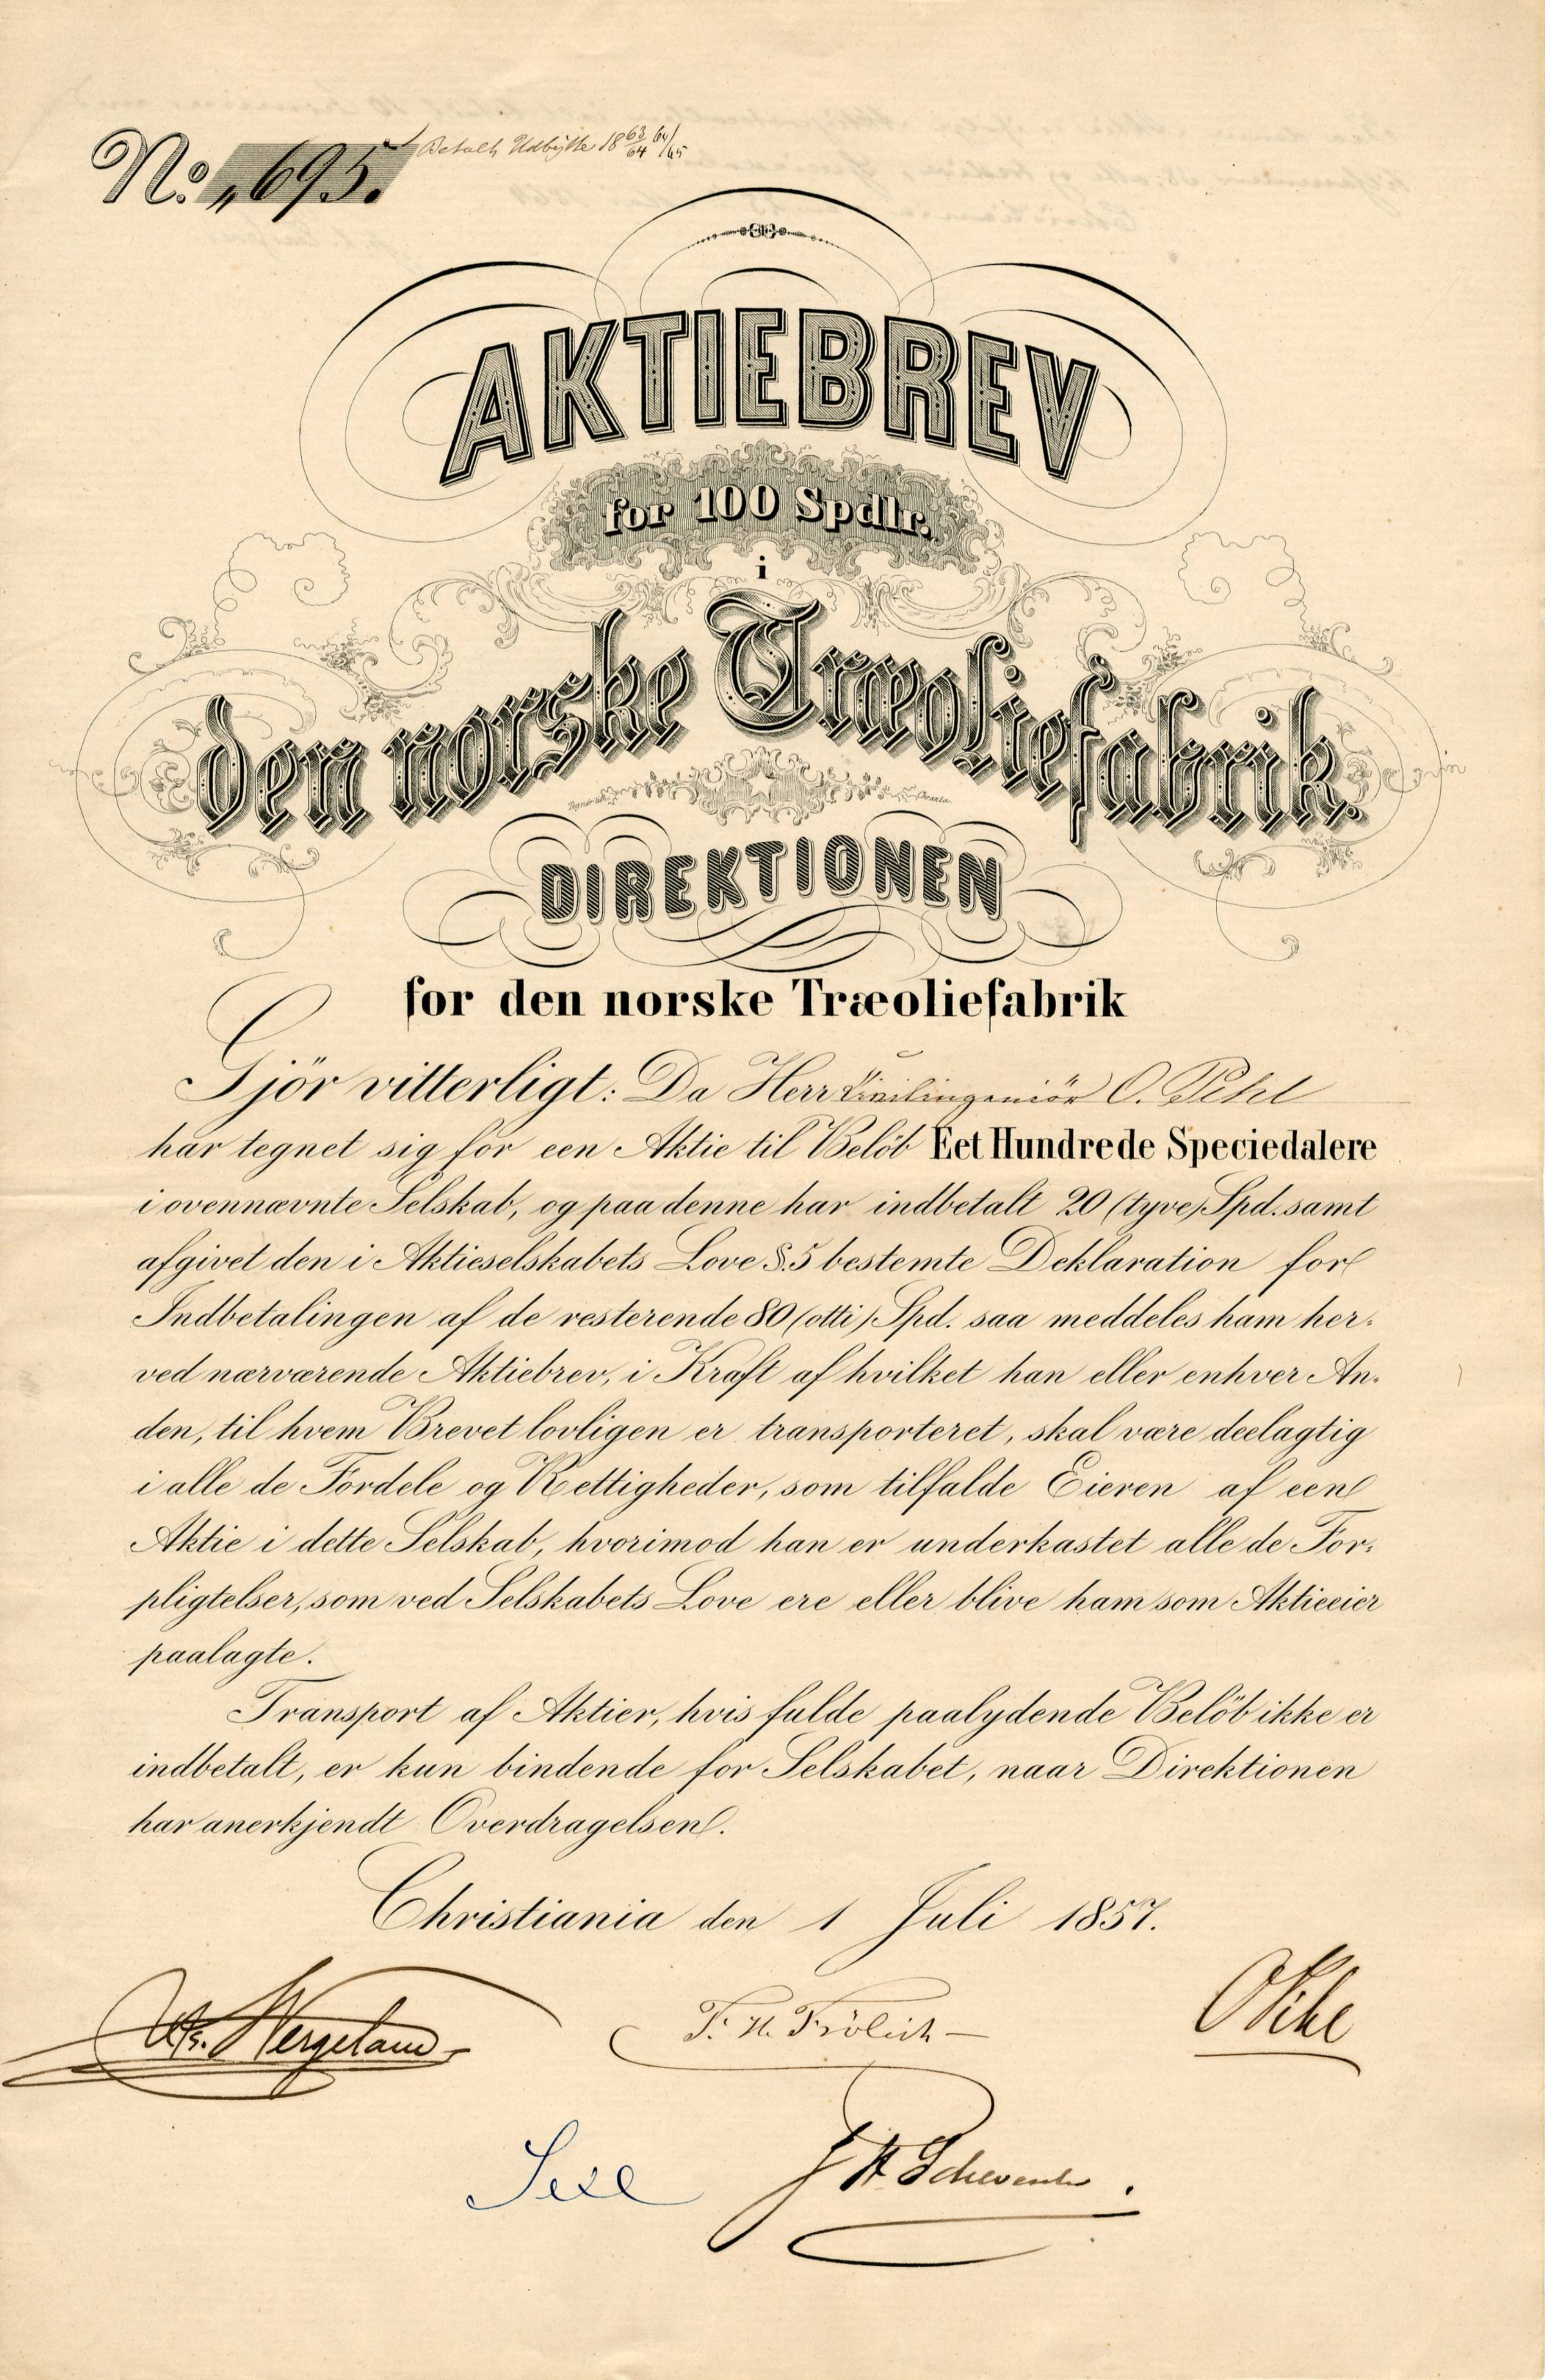 No. 695.
Betalt Udbytte 18 63/64 64/65
AKTIEBREV
for 100 Spdlr.
i
den norske Træoliefabrik.
DIREKTIONEN
for den norske Træoliefabrik
Gjör vitterligt: Da Herr Civilingeniör O. Pihl
har tegnet sig for een Aktie til Belöb Eet Hundrede Speciedalere
i ovennævnte Selskab, og paa denne har indbetalt 20 (tyve) Spd. samt
afgivet den i Aktieselskabets Love §.5 bestemte Deklaration for
Indbetalingen af de resterende 80 (otti) Spd. saa meddeles ham her-
ved nærværende Aktiebrev, i Kraft af hvilket han eller enhver An-
den, til hvem Brevet lovligen er transporteret, skal være deelagtig
i alle de Fordele og Rettigheder, som tilfalde Eieren af een
Aktie i dette Selskab, hvorimod han er underkastet alle de For-
pligtelser, som ved Selskabets Love ere eller blive ham som Aktieeier
paalagte.
Transport af Aktier, hvis fulde paalydende Belöb ikke er
indbetalt, er kun bindende for Selskabet, naar Direktionen
har anerkjendt Overdragelsen.
Christiania den 1 Juli 1857.
Wergeland
F. H. Frölich
O Pihl
Sexe